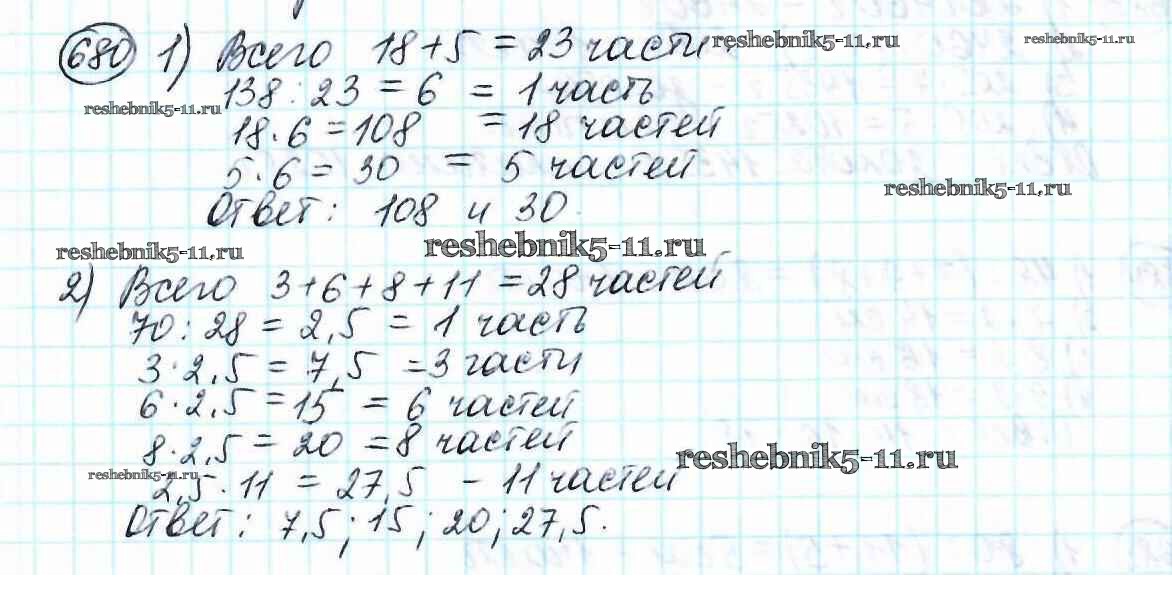 680 1) Всего 18+5 = 23 части. reshebnik5-11.ru reshebnik5-11.ru
reshebnik5-11.ru 138 : 23 = 6 = 1 часть
18 · 6 = 108 = 18 частей
5 · 6 = 30 = 5 частей
reshebnik5-11.ru
Ответ: 108 и 30.
reshebnik5-11.ru reshebnik5-11.ru
2) Всего 3+6+8+11 = 28 частей
70 : 28 = 2,5 = 1 часть
3 · 2,5 = 7,5 = 3 части
6 · 2,5 = 15 = 6 частей
8 · 2,5 = 20 = 8 частей
reshebnik5-11.ru reshebnik5-11.ru
2,5 · 11 = 27,5 - 11 частей
Ответ: 7,5; 15; 20; 27,5.